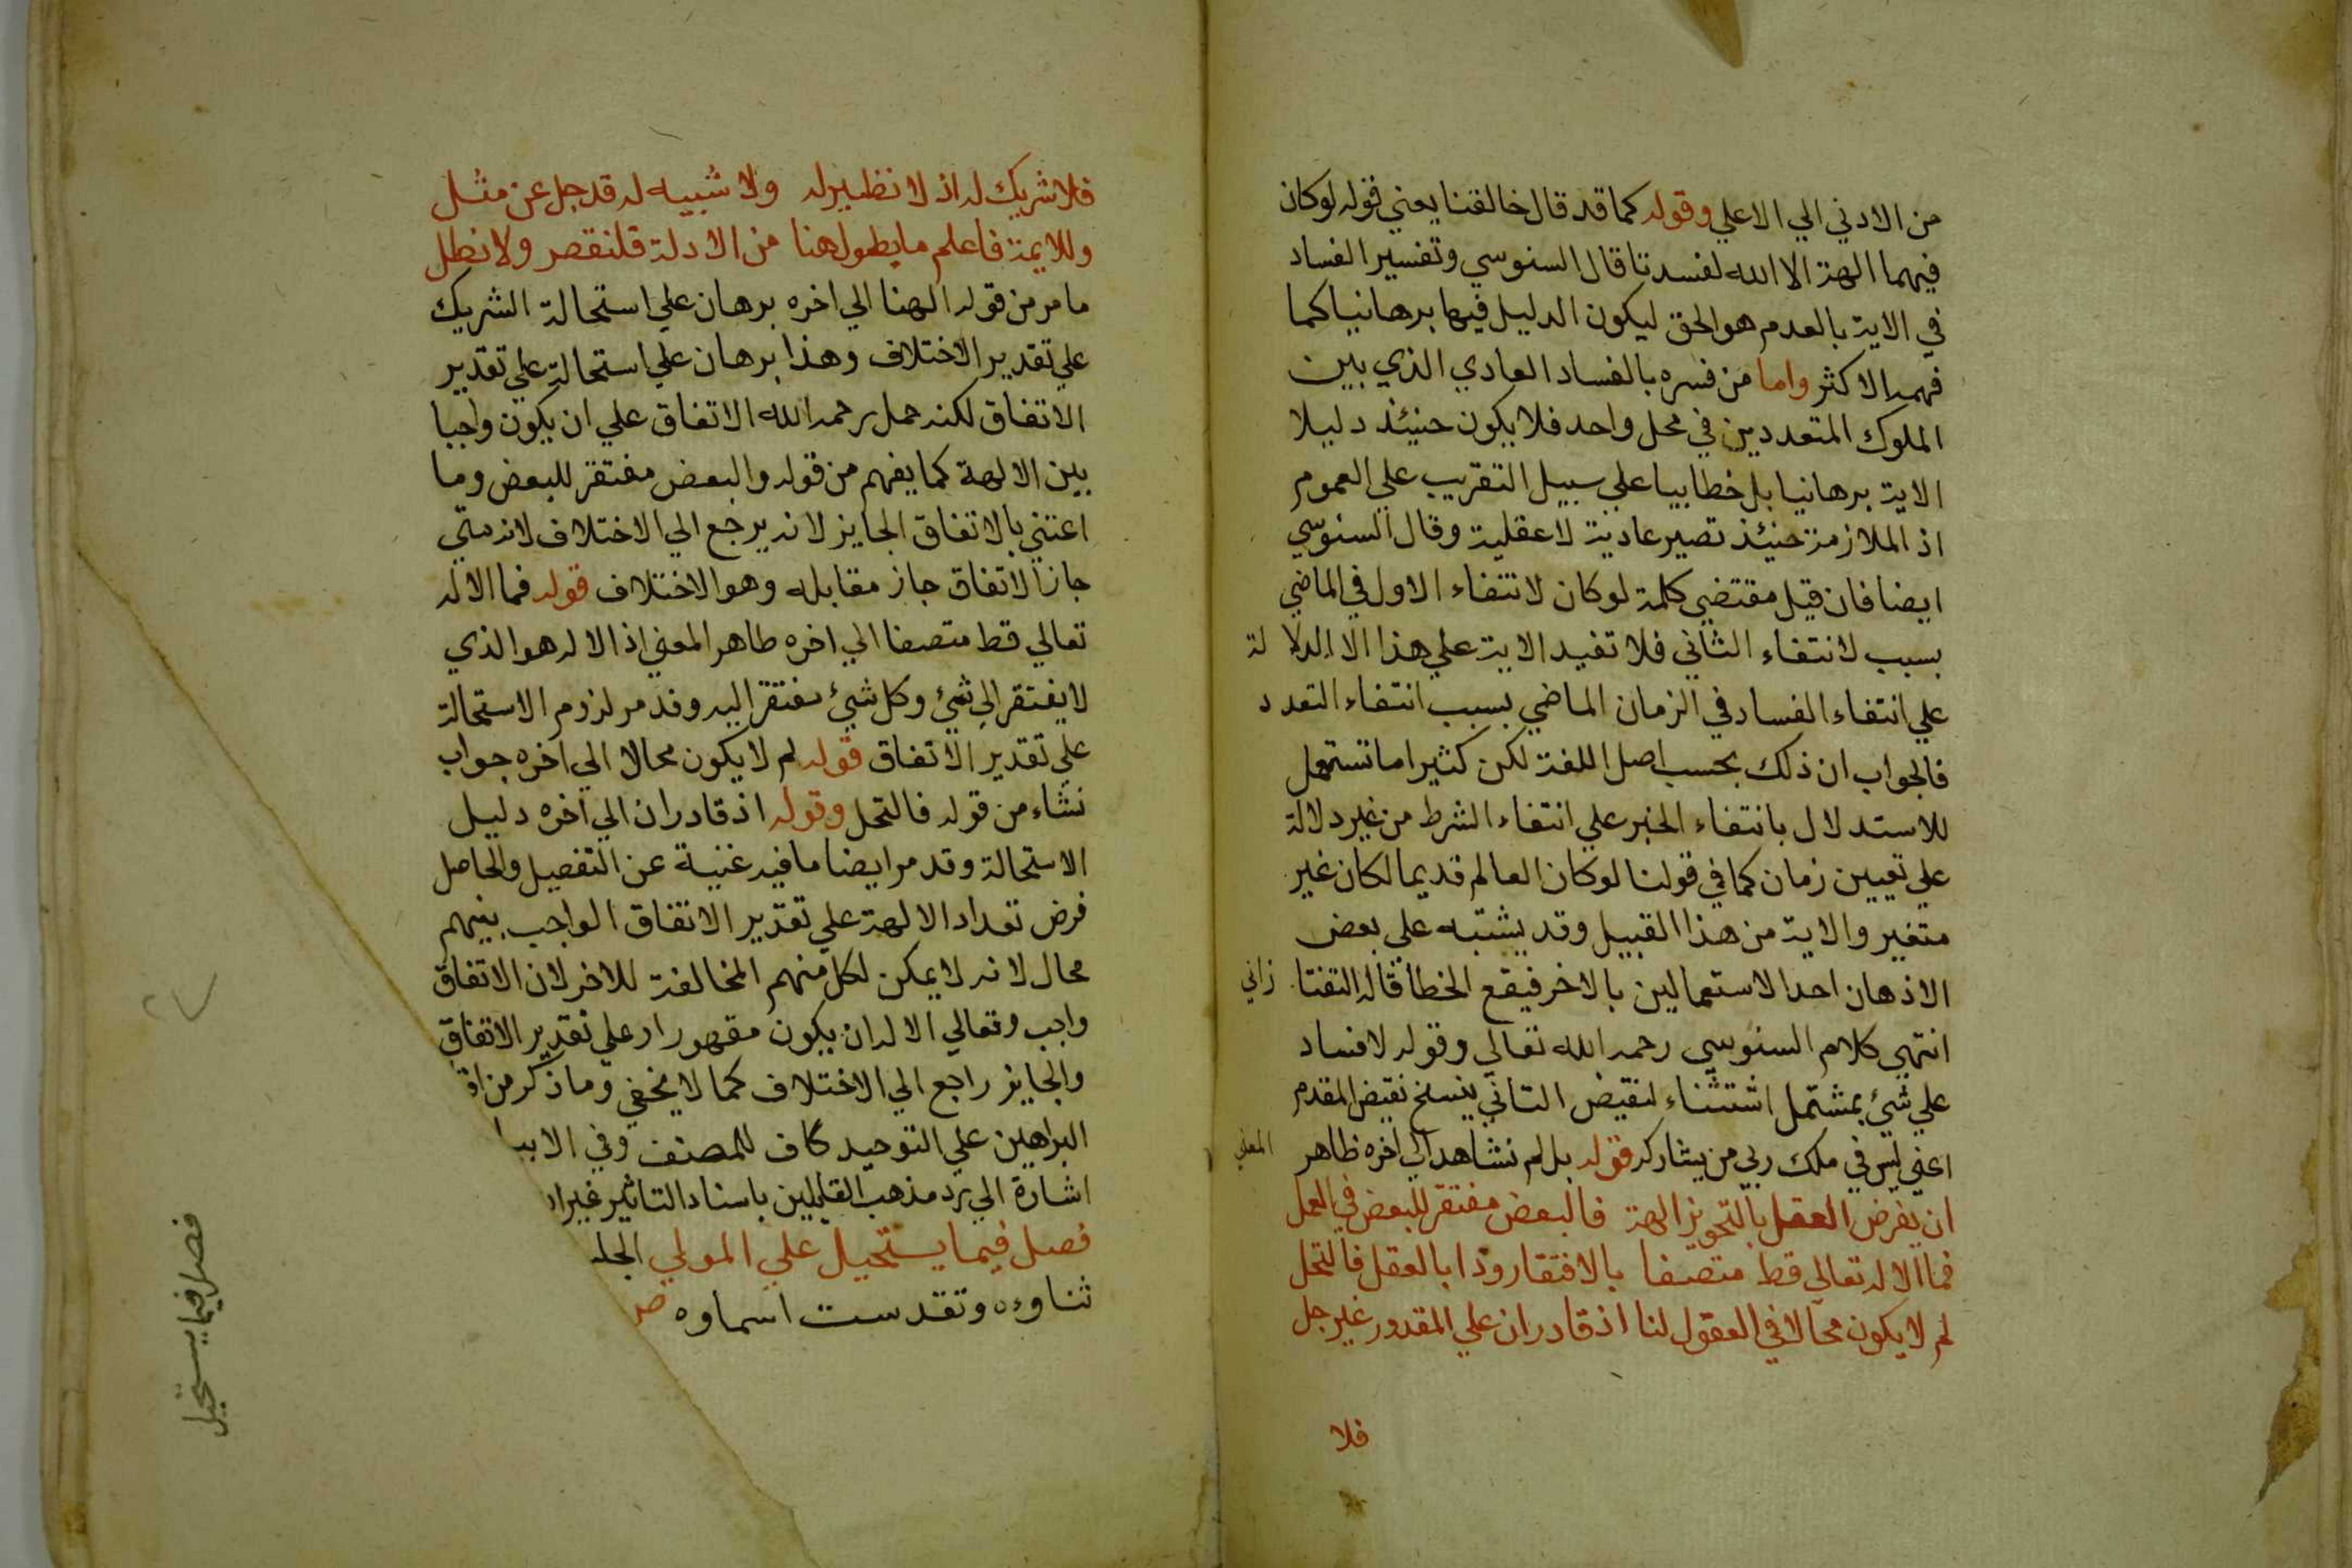 من الادني الي الاعلي وقوله كما قد قال خالقنا يعني قوله لوكان
فيهما الهة الا الله لفسدتا قال السنوسي وتفسير الفساد
في الاية بالعدم هو الحق ليكون الدليل فيها برهانيا كما
فهمه الاكثر واما من فسره بالفساد العادي الذي بين
الملوك المتعددين في محل واحد فلا يكون حنيئذ دليلا
الاية برهانيا بل خطابيا علي سبيل التقريب علي العموم
اذ الملازمة حنيئذ تصير عادية لا عقلية وقال السنوسي
ايضا فان قيل مقتضي كلمة لو كان لانتفاء الاول في الماضي
بسبب لانتفاء الثاني فلا تفيد الاية علي هذا الا الدلالة
علي انتفاء الفساد في الزمان الماضي بسبب انتفاء التعدد
فالجواب ان ذلك بحسب اصل اللغة لكن كثيرا ما تستعمل
للاستدلال بانتفاء الخبر علي انتفاء الشرط من غير دلالة
علي تعيين زمان كما في قولنا لوكان العالم قديما لكان غير
متغير والاية من هذا القبيل وقد يشتبه علي بعض
الاذهان احد الاستعمالين بالاخر فيقع الخطا قاله التفتازاني
انتهي كلام السنوسي رحمه الله تعالي وقوله لافساد
علي شيء بمشتمل اشتثناء لنقيض التاني ينسخ نقيض المقدم
اعني ليس في ملك ربي من يشاركه قوله بل لم نشاهد الي اخره ظاهر المعني
ان يفرض العقل بالتجويز الهة فالبعض مفتقر للبعض في العمل
فما الاله تعالي قط متصفا بالافتقار وذا بالعقل فالتحل
لم لا يكون محالا في العقول لنا اذ قادران علي المقدور غير جل
فلا
فلا شريك له اذ لا نظير له ولا شبيه له قد جل عن مثل
وللايمة فاعلم ما يطول هنا من الادلة فلنقصر ولا نطل
ما مر من قوله الهنا الي اخره برهان علي استحالة الشريك
علي تقدير الاختلاف وهذا برهان علي استحالة علي تقدير
الاتفاق لكنه حمل رحمه الله الاتفاق علي ان يكون واجبا
بين الالهة كما يفهم من قوله والبعض مفتقر للبعض وما
اعتني بالاتفاق الجايز لانه يرجع الي الاختلاف لانه متي
جاز الاتفاق جاز مقابله وهو الاختلاف قوله فما الاله
تعالي قط متصفا الي اخره طاهر المعني اذ الاله هو الذي
لا يفتقر الي شيء وكل شيء مفتقر اليه وقد مر لزوم الاستحالة
علي تقدير الاتفاق قوله لم لا يكون محالا الي اخره جواب
نشاء من قوله فالتحل وقوله اذ قادران الي اخره دليل
الاستحالة وقد مر ايضا ما فيه غنية عن التفصيل والحاصل
فرض تعداد الالهة علي تقدير الاتفاق الواجب بينهم
محال لانه لا يمكن لكل منهم المخالفة للاخر لان الاتفاق
واجب وتعالي الاله ان يكون مقهورا وعلي تقدير الاتفاق
والجايز راجع الي الاختلاف كما لا يخفي وما ذكر من
البراهين علي التوحيد كاف للمصنف وفي
اشارة الي رد مذهب القايلين باسناد التاثير غير
فصل فيما يستحيل علي المولي الجل
ثناوءه وتقدست اسماوه ص
فصل فيما يستحيل